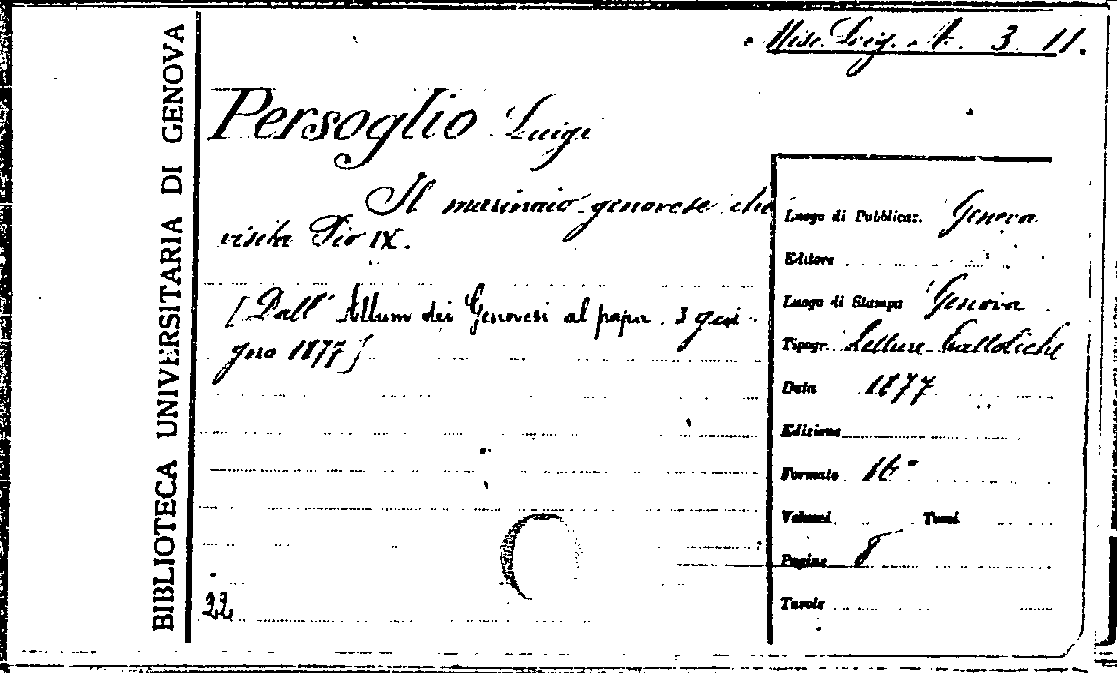 BIBLIOTECA UNIVERSITARIA DI GENOVA
Misc. Lig. A. 3. 11.
Persoglio Luigi
Il marinaio genovese che
visita Pio IX.
[Dall' Album dei Genovesi al papa. 3 giu-
gno 1877]
22
Luogo di Pubblicaz. Genova
Editore
Luogo di Stampa Genova
Tipogr. Letture Cattoliche
Data 1877
Edizione
Formato 16°
Volumi Tomi
Pagine 8
Tavole